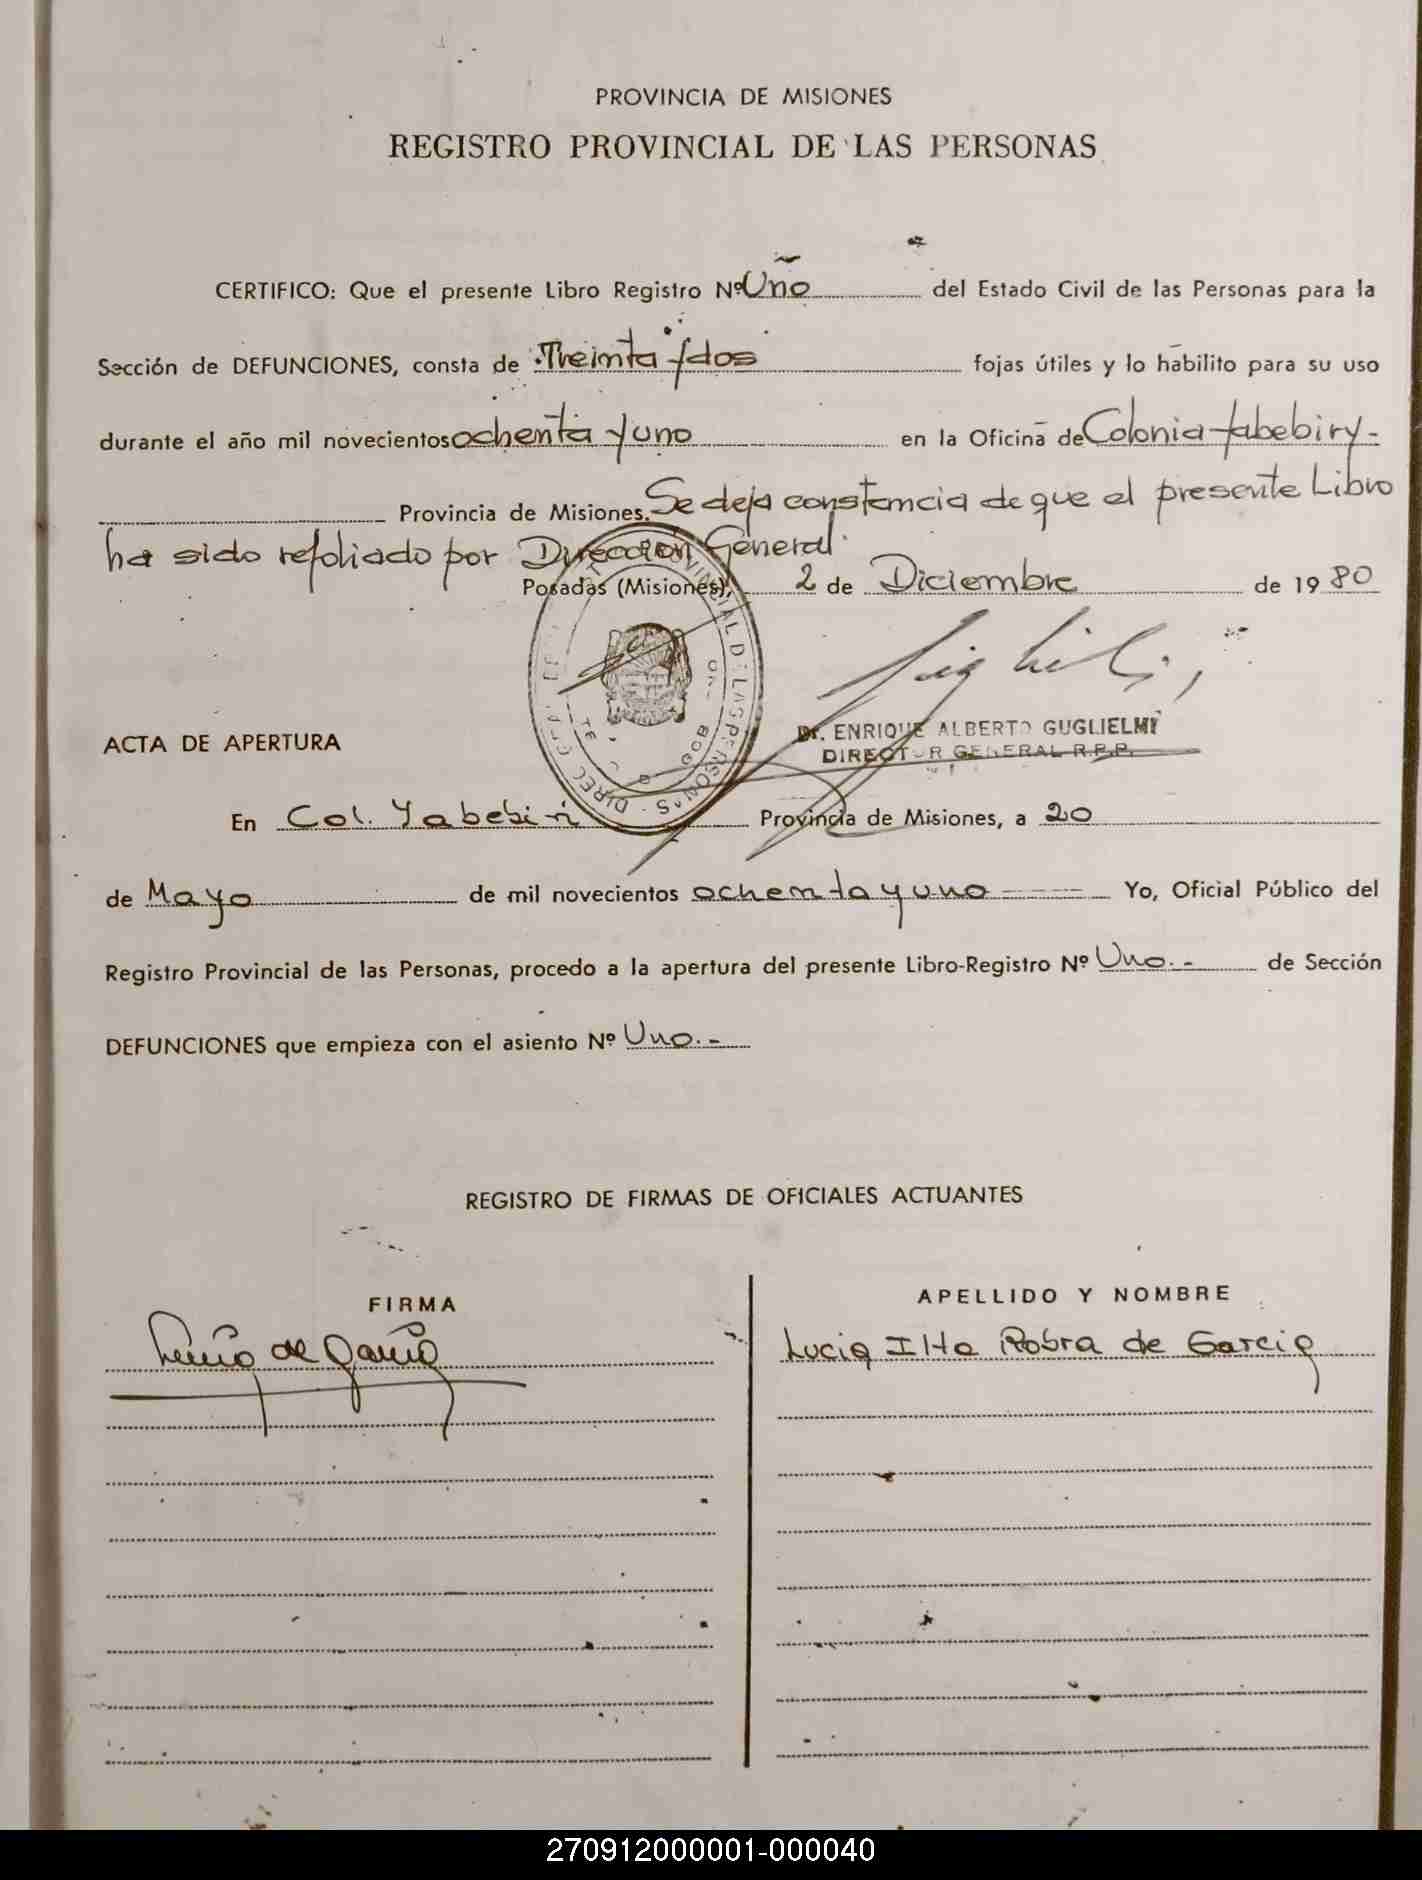 PROVINCIA DE MISIONES
REGISTRO PROVINCIAL DE LAS PERSONAS
CERTIFICO: Que el presente Libro Registro Nº Uno del Estado Civil de las Personas para la
Sección de DEFUNCIONES, consta de Treinta y dos fojas útiles y lo habilito para su uso
durante el año mil novecientos ochenta y uno en la Oficina de Colonia Yabebiry-
Provincia de Misiones. Se deja constancia de que el presente Libro
ha sido refoliado por Dirección General.
Posadas (Misiones), 2 de Diciembre de 1980
Dr. ENRIQUE ALBERTO GUGLIELMI
DIRECTOR GENERAL R.P.P.
ACTA DE APERTURA
En Col. Yabebiri Provincia de Misiones, a 20
de Mayo de mil novecientos ochenta y uno Yo, Oficial Público del
Registro Provincial de las Personas, procedo a la apertura del presente Libro-Registro Nº Uno.- de Sección
DEFUNCIONES que empieza con el asiento Nº Uno.-
REGISTRO DE FIRMAS DE OFICIALES ACTUANTES
FIRMA
APELLIDO Y NOMBRE
de Garcia
Lucia Ilda Robra de Garcia
270912000001-000040